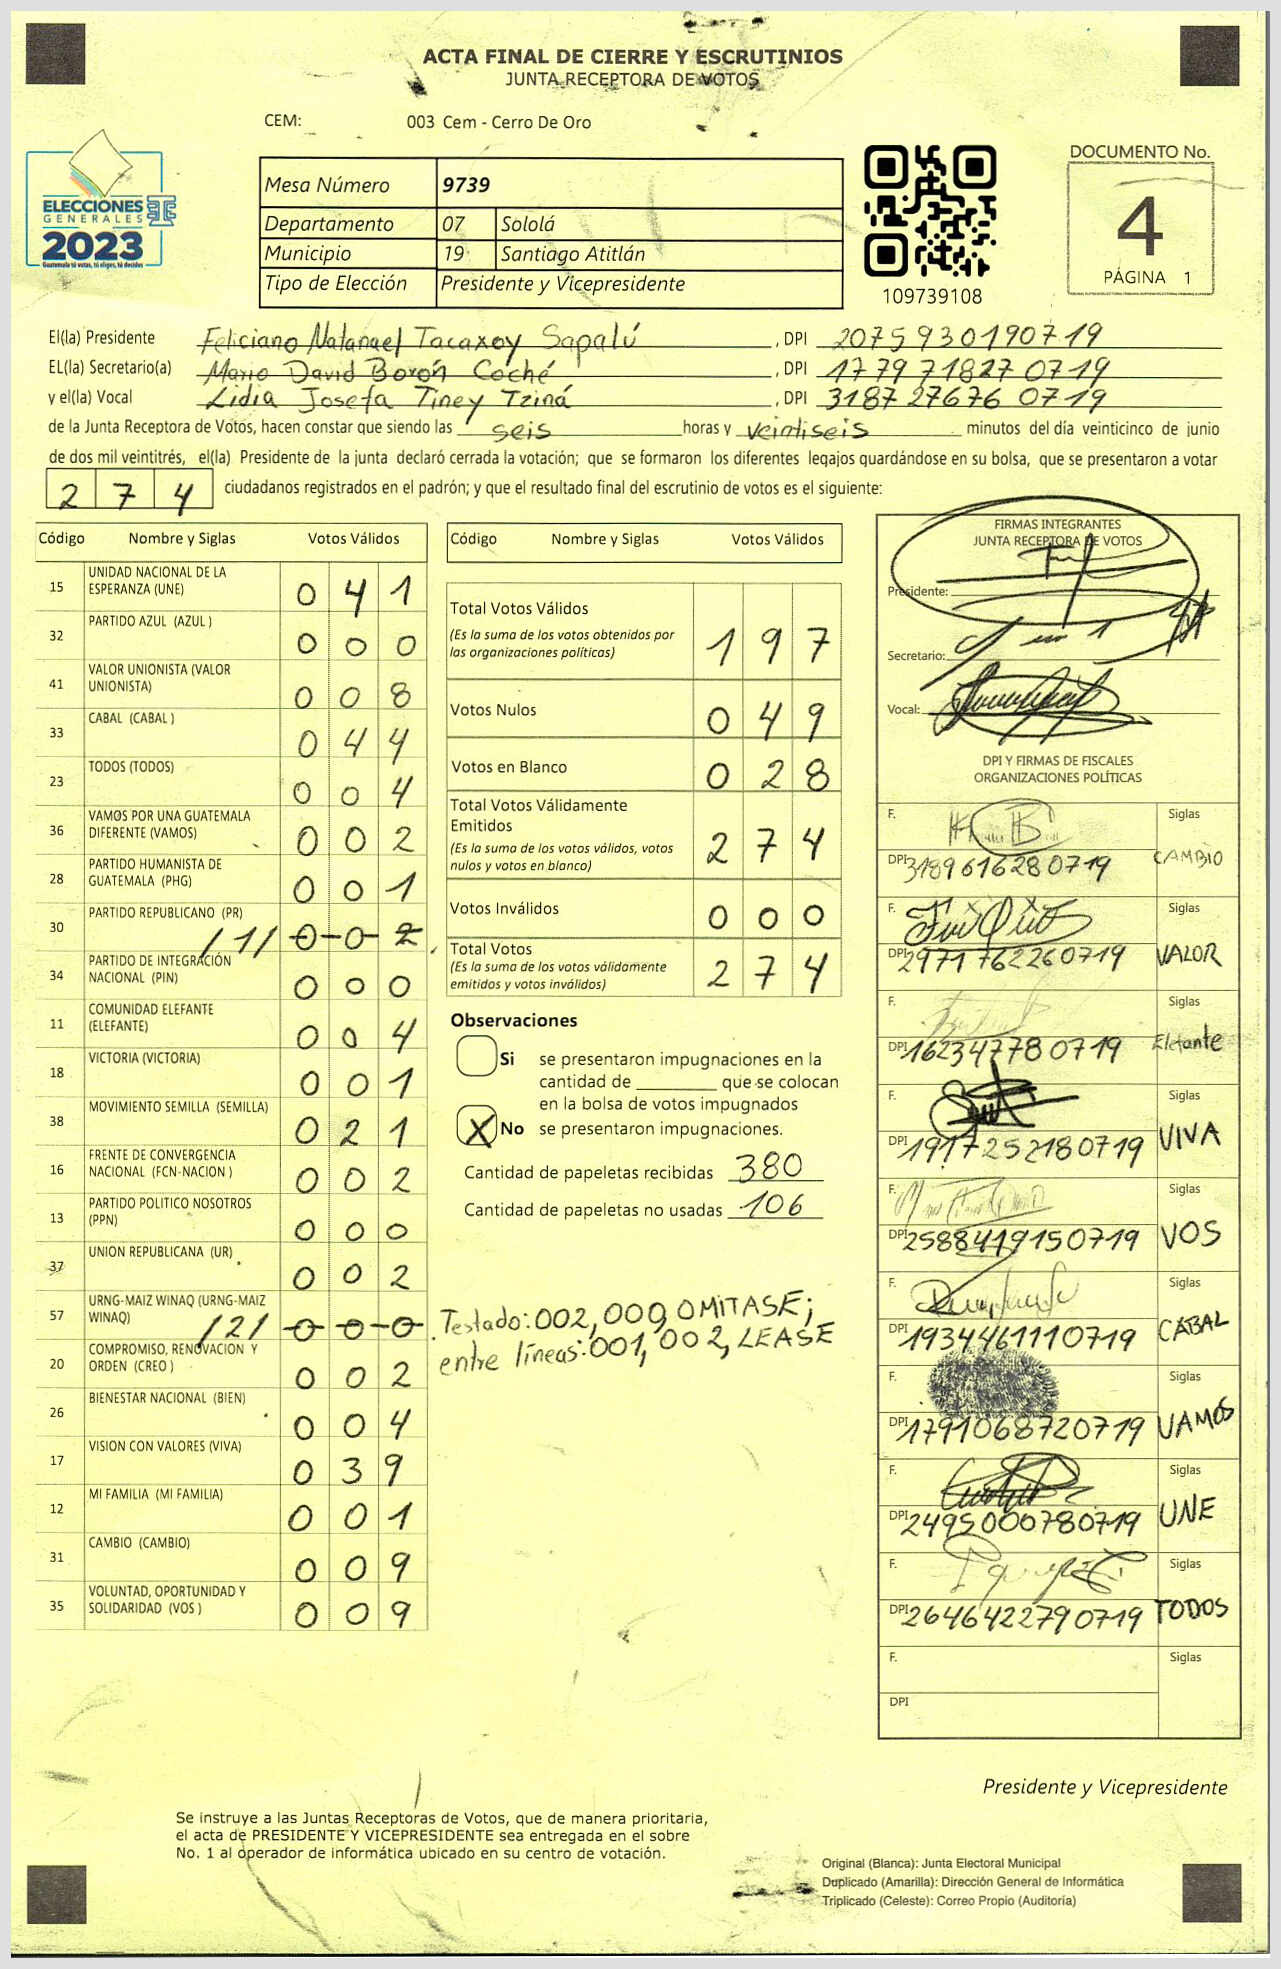 ACTA FINAL DE CIERRE Y ESCRUTINIOS
JUNTA RECEPTORA DE VOTOS
CEM: 003 Cem - Cerro De Oro
ELECCIONES
GENERALES
2023
Guatemala tú votas, tú eliges, tú decides
Mesa Número 9739
Departamento 07 Sololá
Municipio 19 Santiago Atitlán
Tipo de Elección Presidente y Vicepresidente
109739108
DOCUMENTO No.
4
PÁGINA 1
El(la) Presidente Feliciano Natanael Tacaxoy Sapalú , DPI 2075930190719
EL(la) Secretario(a) Mario David Borón Coché , DPI 1779718270719
y el(la) Vocal Lidia Josefa Tiney Tziná , DPI 3187276760719
de la Junta Receptora de Votos, hacen constar que siendo las seis horas y veintiseis minutos del día veinticinco de junio
de dos mil veintitrés, el(la) Presidente de la junta declaró cerrada la votación; que se formaron los diferentes legajos guardándose en su bolsa, que se presentaron a votar
2 7 4 ciudadanos registrados en el padrón; y que el resultado final del escrutinio de votos es el siguiente:
Código Nombre y Siglas Votos Válidos
15 UNIDAD NACIONAL DE LA ESPERANZA (UNE) 0 4 1
32 PARTIDO AZUL (AZUL ) 0 0 0
41 VALOR UNIONISTA (VALOR UNIONISTA) 0 0 8
33 CABAL (CABAL ) 0 4 4
23 TODOS (TODOS) 0 0 4
36 VAMOS POR UNA GUATEMALA DIFERENTE (VAMOS) 0 0 2
28 PARTIDO HUMANISTA DE GUATEMALA (PHG) 0 0 1
30 PARTIDO REPUBLICANO (PR) /1/ 0-0-2
34 PARTIDO DE INTEGRACIÓN NACIONAL (PIN) 0 0 0
11 COMUNIDAD ELEFANTE (ELEFANTE) 0 0 4
18 VICTORIA (VICTORIA) 0 0 1
38 MOVIMIENTO SEMILLA (SEMILLA) 0 2 1
16 FRENTE DE CONVERGENCIA NACIONAL (FCN-NACION ) 0 0 2
13 PARTIDO POLITICO NOSOTROS (PPN) 0 0 0
37 UNION REPUBLICANA (UR) 0 0 2
57 URNG-MAIZ WINAQ (URNG-MAIZ WINAQ) /2/ 0-0-0
20 COMPROMISO, RENOVACION Y ORDEN (CREO ) 0 0 2
26 BIENESTAR NACIONAL (BIEN) 0 0 4
17 VISION CON VALORES (VIVA) 0 3 9
12 MI FAMILIA (MI FAMILIA) 0 0 1
31 CAMBIO (CAMBIO) 0 0 9
35 VOLUNTAD, OPORTUNIDAD Y SOLIDARIDAD (VOS ) 0 0 9
Código Nombre y Siglas Votos Válidos
Total Votos Válidos
(Es la suma de los votos obtenidos por
las organizaciones políticas) 1 9 7
Votos Nulos 0 4 9
Votos en Blanco 0 2 8
Total Votos Válidamente
Emitidos
(Es la suma de los votos válidos, votos
nulos y votos en blanco) 2 7 4
Votos Inválidos 0 0 0
Total Votos
(Es la suma de los votos válidamente
emitidos y votos inválidos) 2 7 4
Observaciones
Si se presentaron impugnaciones en la
cantidad de ________ que se colocan
en la bolsa de votos impugnados
X No se presentaron impugnaciones.
Cantidad de papeletas recibidas 380
Cantidad de papeletas no usadas 106
Testado: 002, 000, OMITASE;
entre líneas: 001, 002, LEASE
FIRMAS INTEGRANTES
JUNTA RECEPTORA DE VOTOS
Presidente:
Secretario:
Vocal:
DPI Y FIRMAS DE FISCALES
ORGANIZACIONES POLÍTICAS
F. Siglas
DPI 3189616280719 CAMBIO
F. Siglas
DPI 2971762260719 VALOR
F. Siglas
DPI 1623477780719 Elefante
F. Siglas
DPI 1917252180719 VIVA
F. Siglas
DPI 2588419150719 VOS
F. Siglas
DPI 1934461110719 CABAL
F. Siglas
DPI 1791068720719 VAMOS
F. Siglas
DPI 2495000780719 UNE
F. Siglas
DPI 2646422790719 TODOS
F. Siglas
DPI
Presidente y Vicepresidente
Se instruye a las Juntas Receptoras de Votos, que de manera prioritaria,
el acta de PRESIDENTE Y VICEPRESIDENTE sea entregada en el sobre
No. 1 al operador de informática ubicado en su centro de votación.
Original (Blanca): Junta Electoral Municipal
Duplicado (Amarilla): Dirección General de Informática
Triplicado (Celeste): Correo Propio (Auditoría)